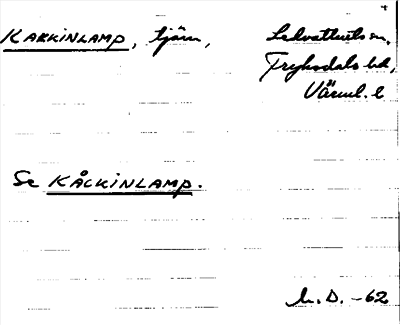 KAKKINLAMP, tjärn, Lekvattnets sn,
Fryksdals hd,
Värml. l
Se KÅCKINLAMP.
L. D. -62